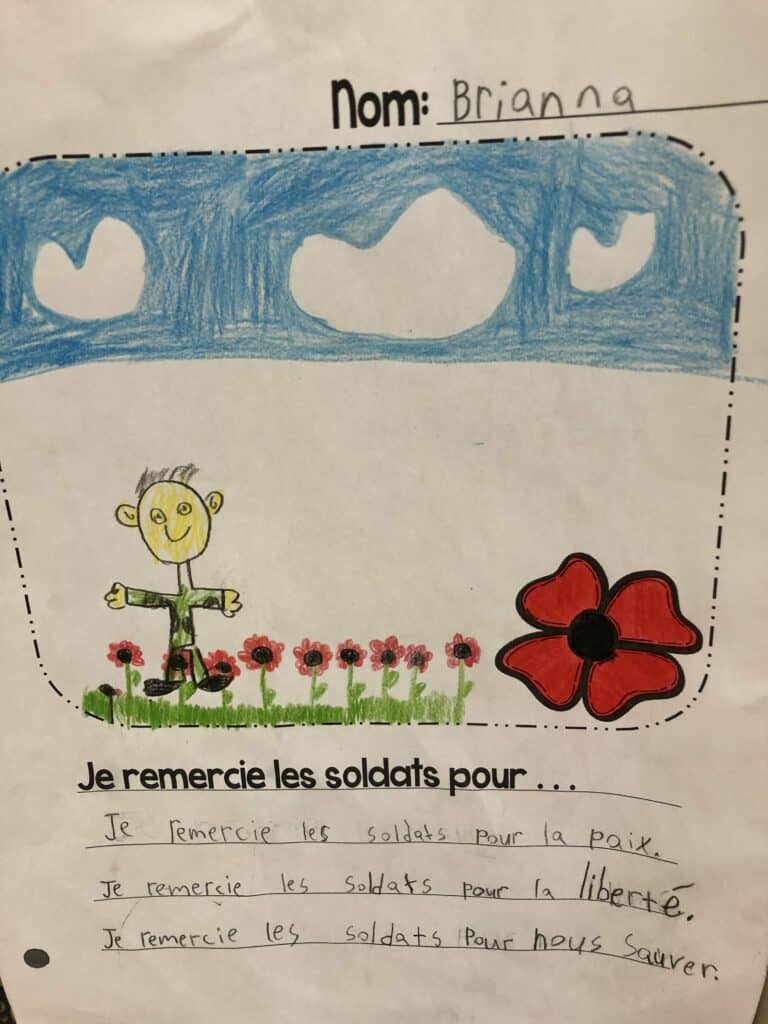 Nom: Brianna
Je remercie les soldats pour . . .
Je remercie les soldats pour la paix.
Je remercie les soldats pour la liberté.
Je remercie les soldats pour nous sauver.